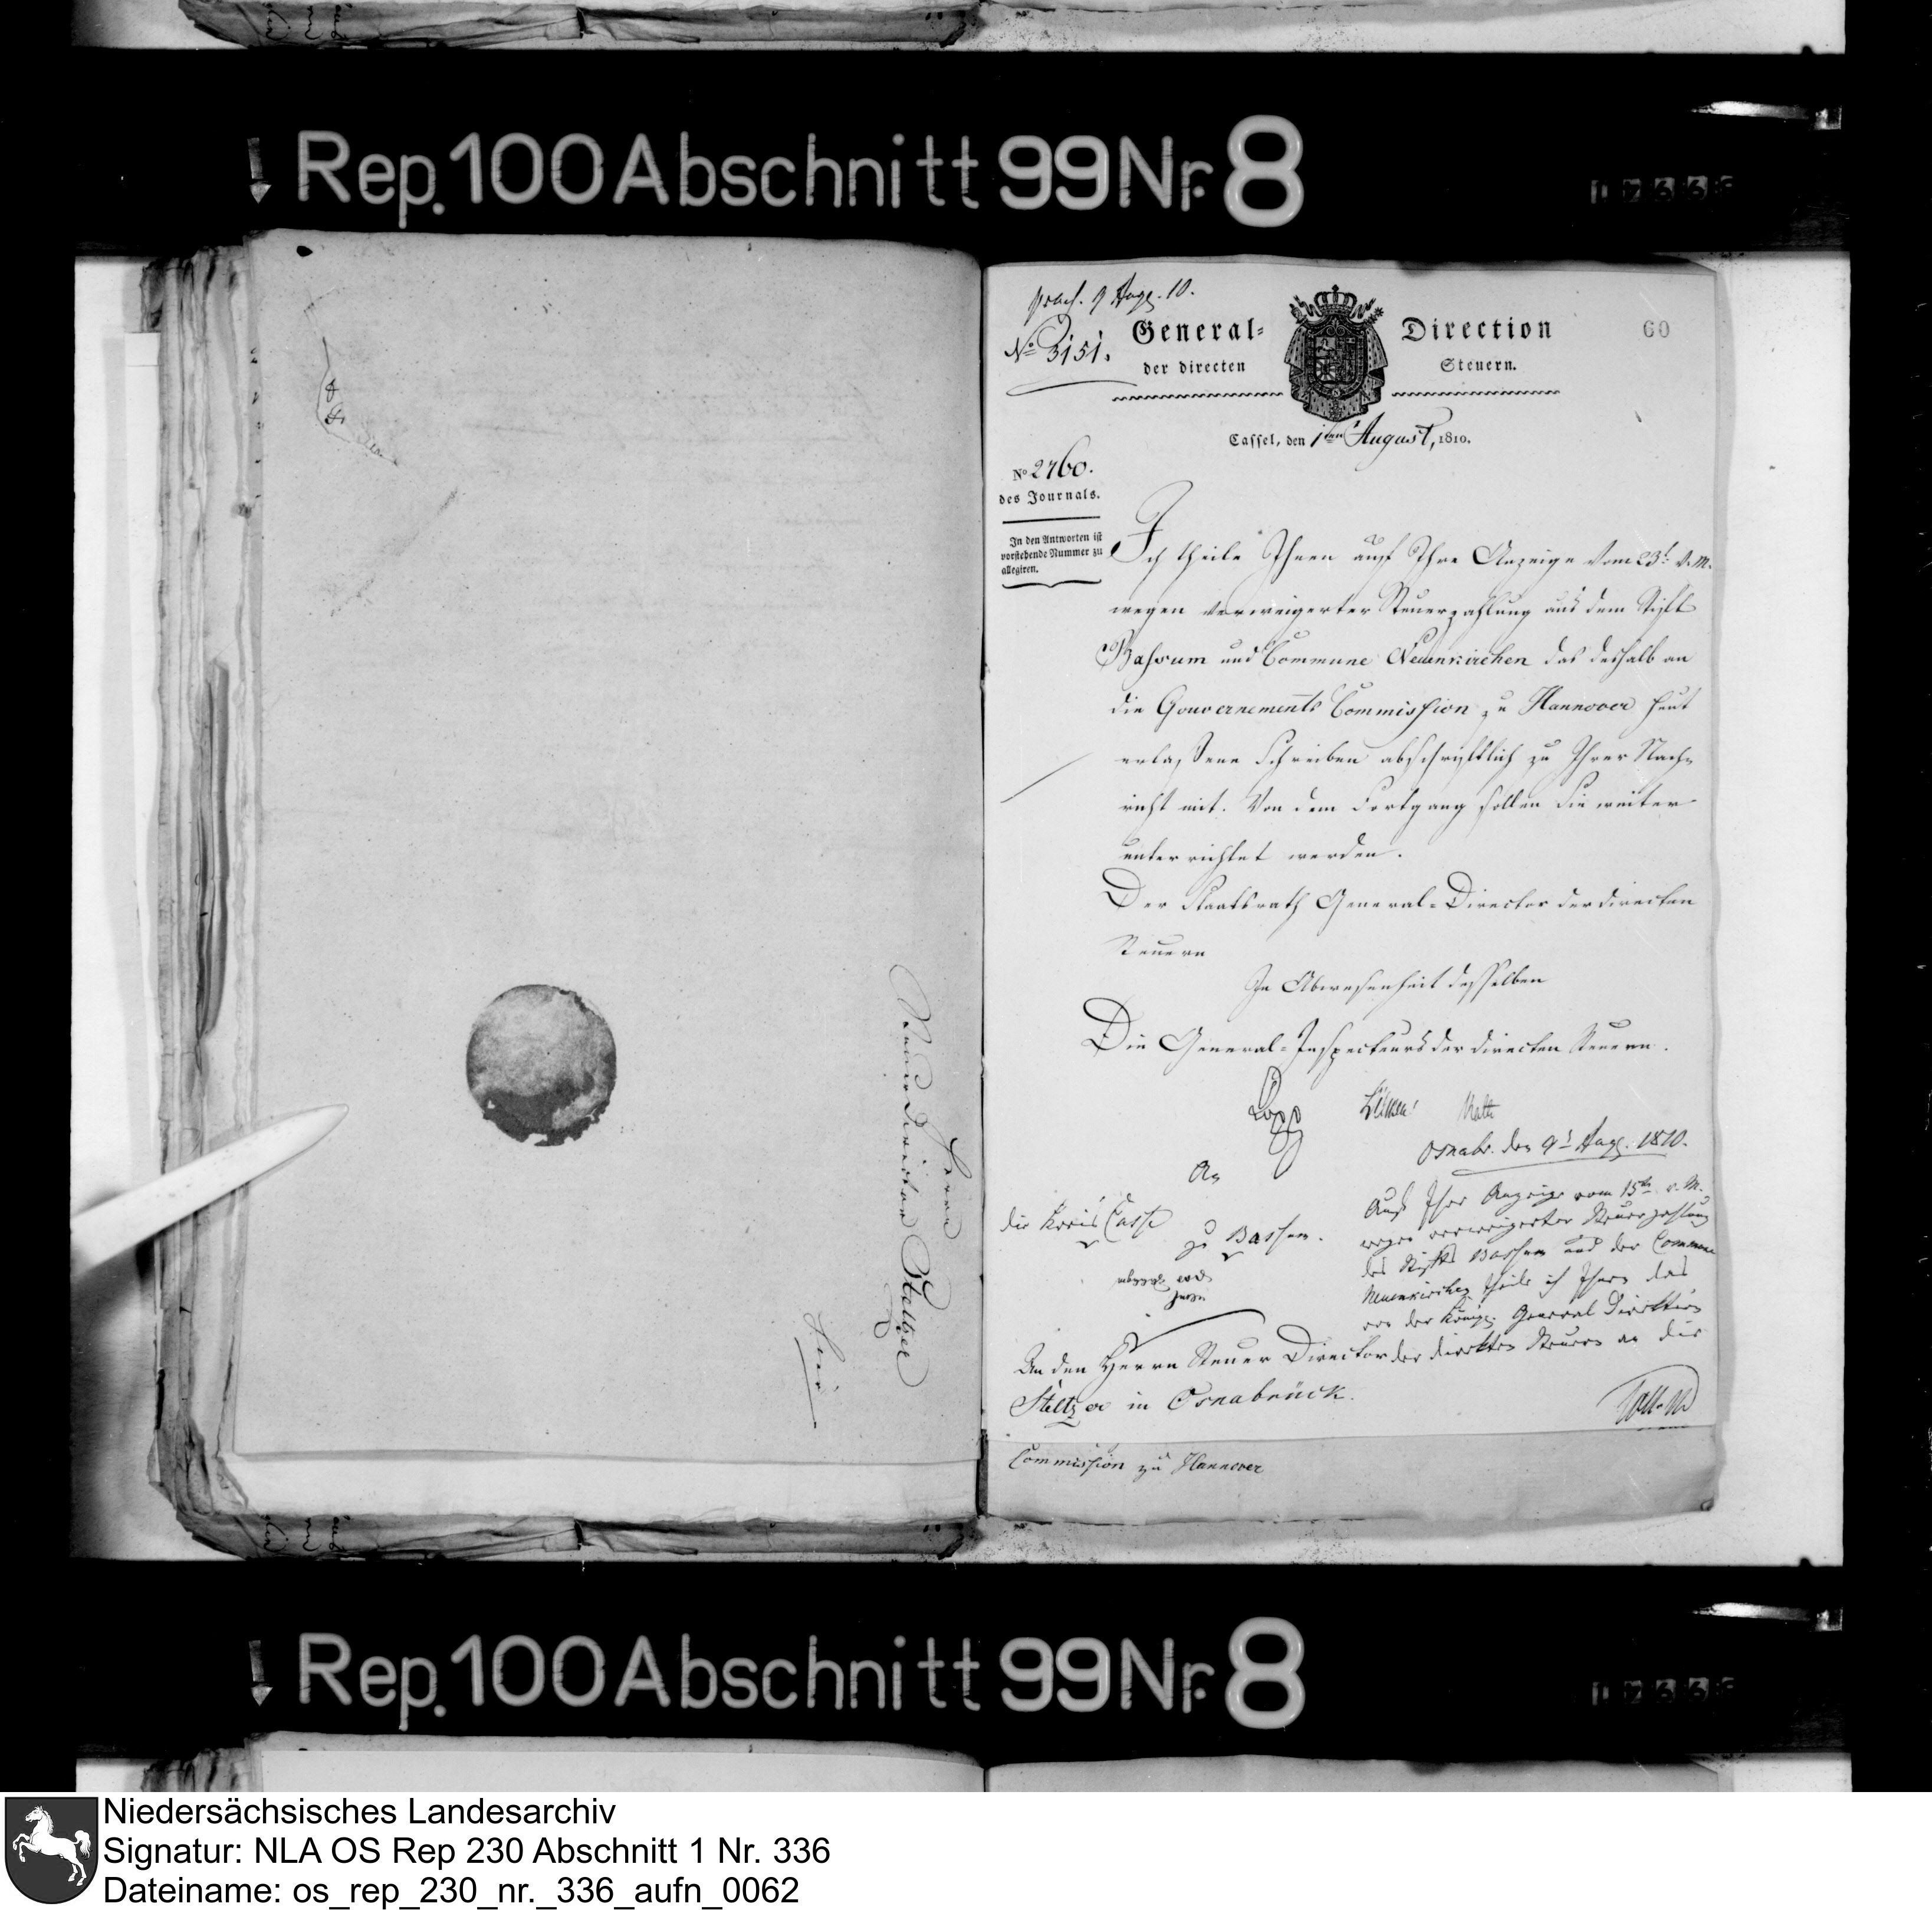 Rep. 100 Abschnitt 99 Nr. 8
praes. 9 Aug. 10.
No 3151.
General-Direction
der directen Steuern.
60
Cassel, den 1ten August, 1810.
No 2760.
des Journals.
In den Antworten ist
vorstehende Nummer zu
allegiren.
Ich theile Ihnen auf Ihre Anzeige vom 23t v. M.
wegen verweigerter Steuerzahlung aus dem Stift
Bassum und Commune Neuenkirchen das deshalb an
die Gouvernements Commission zu Hannover heut
erlassene Schreiben abschriftlich zu Ihrer Nach-
richt mit. Von dem Fortgang sollen Sie weiter
unterrichtet werden.
Der Staatsrath General-Director der directen
Steuern
In Abwesenheit desselben
Die General-Inspecteurs der directen Steuern.
Osnabr. den 9t Aug. 1810.
An
die Kreis Casse
zu Bassum.
Auf Ihre Anzeige vom 15ten v. M.
wegen verweigerter Steuerzahlung
des Stifts Bassum und der Commune
Neuenkirchen theile ich Ihnen das
von der Königl. General Direktion
der direkten Steuern an die
An den Herrn Steuer Director
Steltzer in Osnabrück.
Commission zu Hannover
Herrn
Steuer Director Steltzer
Rep. 100 Abschnitt 99 Nr. 8
Niedersächsisches Landesarchiv
Signatur: NLA OS Rep 230 Abschnitt 1 Nr. 336
Dateiname: os_rep_230_nr._336_aufn_0062